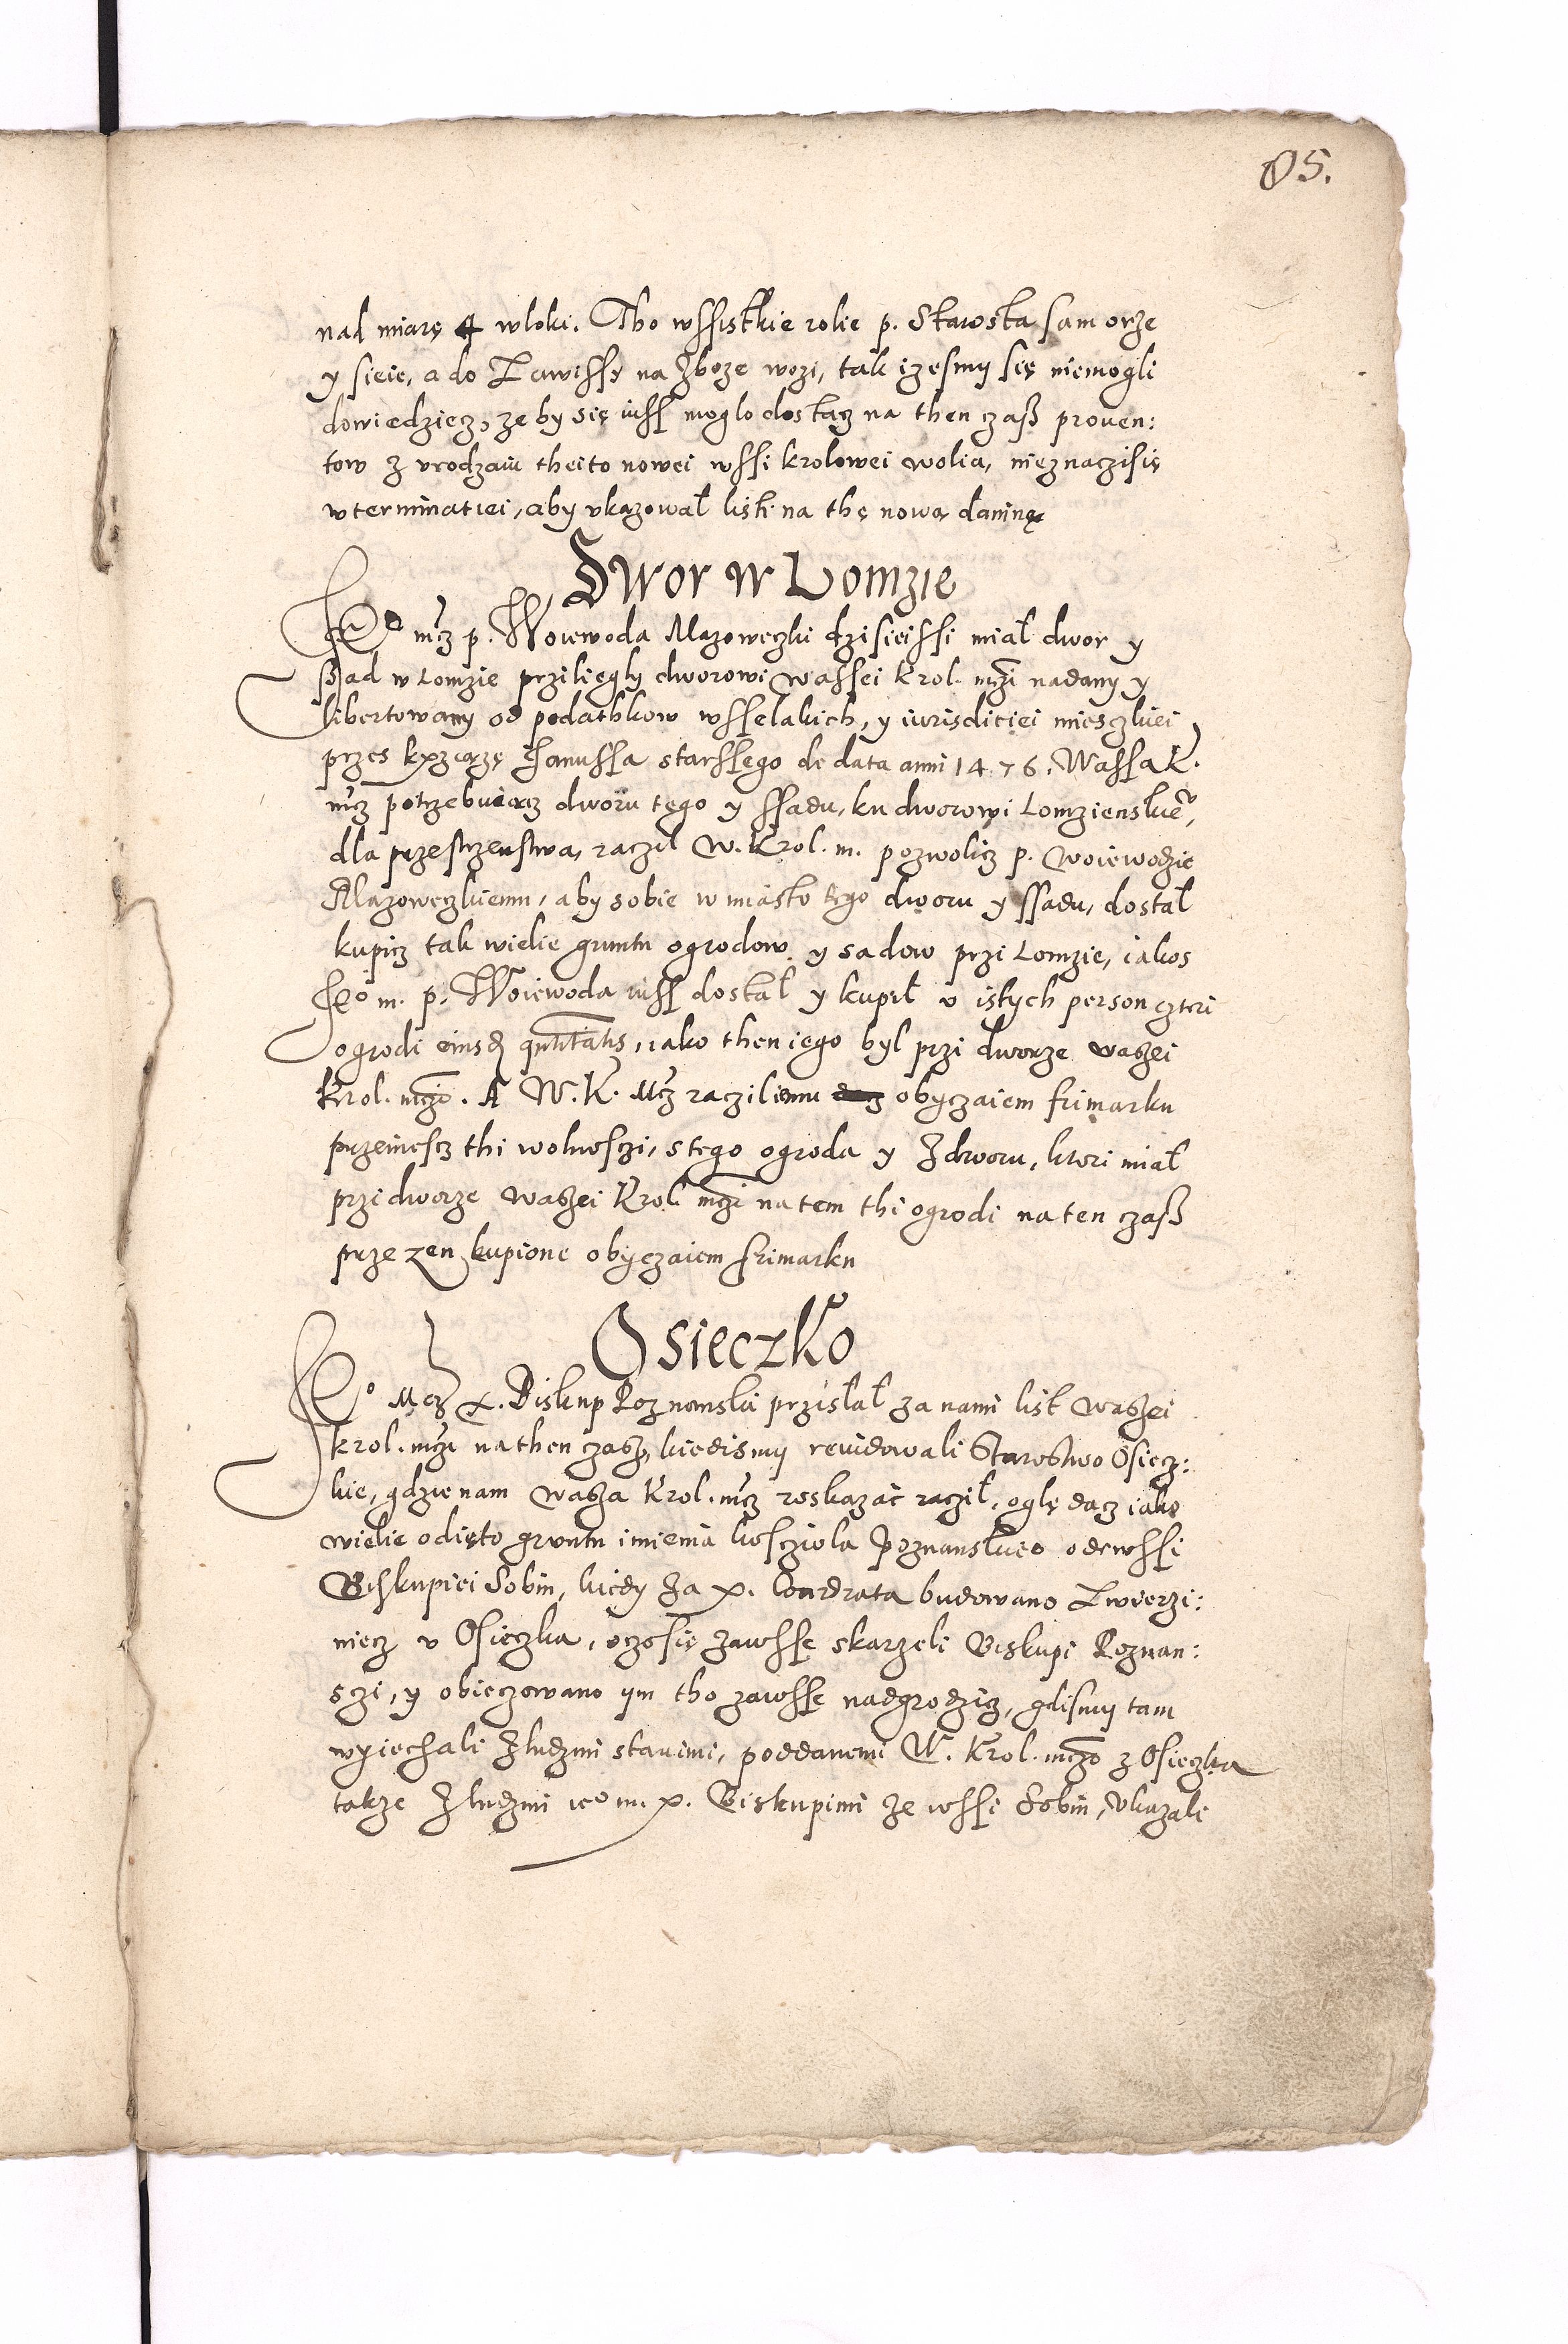 05.
nad miarę 4 wloki. Tho wssistkie rolie p. Starosta sam orze
y sieie, a do Zawissy na Zboze wozi, tak izesmy się niemogli
dowiedziecz, ze by się iuss moglo dostacz na then czaß prouen:
tow z vrodzaiu theito nowei wssi krolowei wolia, nieznaczisię
w terminatiei, aby vkazowal listi na thę nową daninę
Dwor w Lomzie
Je° mcz p. Woiewoda Mazoweczki dzisieissi mial dwor y
ssad w Lomzie przilięgly dworowi wassei krol. mczi nadany y
libertowany od podathkow wsselakich, y iurisdiciei mieszkiei
przes kxziązę Janussa starssego de data anni 1476. Wassa K.
mcz potrzebuiącz dworu tego y ssadu, ku dworowi Lomzienskie°,
dla przestrzenstwa, raczil W. Krol. m. pozwolicz p. woiewodzie
Mazoweczkiemu, aby sobie w miasto tego dworu y ssadu, dostal
kupicz tak wielie gruntu ogrodow y sadow przi Lomzie, iakos
Je° m. p. Woiewoda iuss dostal y kupil v istych person cztri
ogrodi eiusd qntitatis, iako then iego byl przi dworze waszei
Krol. mczi. A W. K. Mcz raczilemu obyczaiem frimarku
przeniescz thi wolnosczi, s tego ogroda y Zdworu, ktori mial
przi dworze waszei Krol mczi na tem thi ogrodi na ten czaß
prze zen kupione obyczaiem frimarku
Osieczko
Je° Mcz x. Biskup Poznanski przislal za nami list waszei
krol. mczi na then czasz, kiedismy reuidowali Starostwo Osiecz:
kie, gdzie nam wasza Krol. mcz roskazać raczil, oględacz iako
wielie odięto gruntu imienia kosciola Poznanskie° odewssi
Biskupiei Sobin, kiedy Za x. Condrata budowano Zwierzi:
niecz v Osieczka, oczosię zawsse skarzeli Biskupi Poznan:
sczi, y obieczowano ym tho zawsse nadgrodzicz, gdismy tam
wyiechali Zludzmi starimi, poddanemi W. Krol. mczi z Osieczka
takze Zludzmi ie° m. x. Biskupimi Ze wssi Sobin, Vkazali